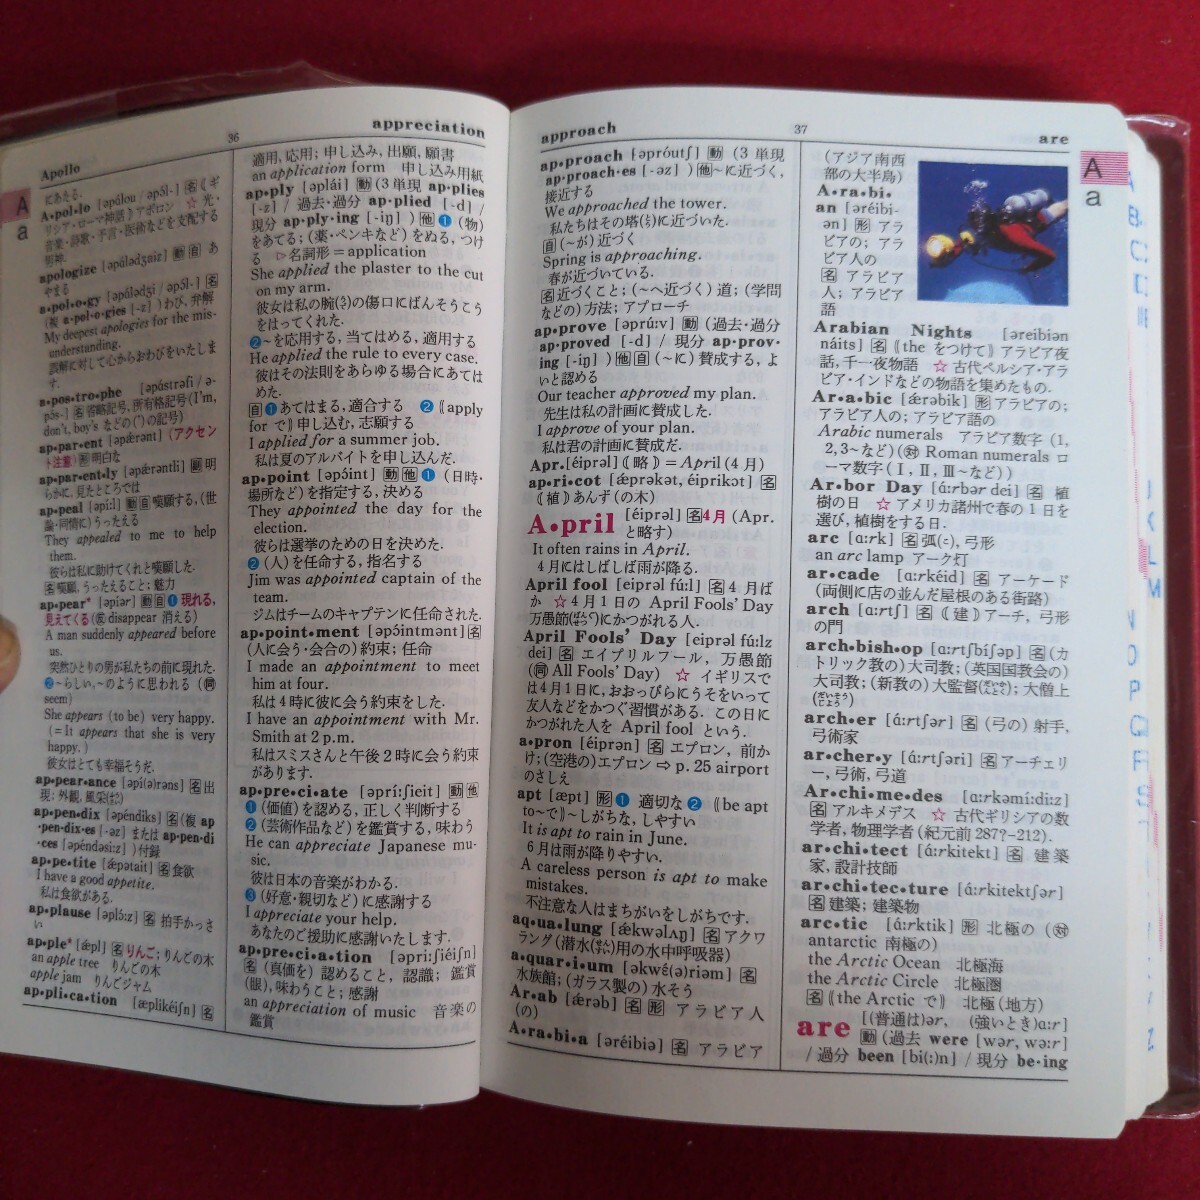 36
appreciation
Apollo
A
a
にあたる.
A•pol•lo [əpálou / əpɔ́l-] 名 《ギ
リシア・ローマ神話》アポロン ☆ 光・
音楽・詩歌・予言・医術などを支配する
男神.
apologize [əpálədʒaiz] 動 自 あ
やまる
a•pol•o•gy [əpálədʒi / əpɔ́l-] 名
(複 a•pol•o•gies [-z]) わび, 弁解
My deepest apologies for the mis-
understanding.
誤解に対して心からおわびをいたしま
す.
a•pos•tro•phe [əpástrəfi / ə-
pɔ́s-] 名 省略記号, 所有格記号(I'm,
don't, boy's などの(')の記号)
ap•par•ent [əpǽrənt] (アクセン
ト注意) 形 明白な
ap•par•ent•ly [əpǽrəntli] 副 明
らかに, 見たところでは
ap•peal [əpíːl] 動 自 嘆願する, (世
論・同情に) うったえる
They appealed to me to help
them.
彼らは私に助けてくれと嘆願した.
名 嘆願, うったえること; 魅力
ap•pear* [əpíər] 動 自 ❶ 現れる,
見えてくる (反 disappear 消える)
A man suddenly appeared before
us.
突然ひとりの男が私たちの前に現れた.
❷ ~らしい, ~のように思われる (同
seem)
She appears (to be) very happy.
(=It appears that she is very
happy.)
彼女はとても幸福そうだ.
ap•pear•ance [əpí(ə)rəns] 名 出
現; 外観, 風采(さい)
ap•pen•dix [əpéndiks] 名 (複 ap
•pen•dix•es [-əz] または ap•pen•di
•ces [əpéndəsiːz]) 付録
ap•pe•tite [ǽpətait] 名 食欲
I have a good appetite.
私は食欲がある.
ap•plause [əplɔ́ːz] 名 拍手かっさ
い
ap•ple* [ǽpl] 名 りんご; りんごの木
an apple tree りんごの木
apple jam りんごジャム
ap•pli•ca•tion [æplikéiʃn] 名
適用, 応用; 申し込み, 出願, 願書
an application form 申し込み用紙
ap•ply [əplái] 動 (3単現 ap•plies
[-z] / 過去・過分 ap•plied [-d] /
現分 ap•ply•ing [-iŋ]) 他 ❶ (物)
をあてる; (薬・ペンキなど) をぬる, つけ
る ▷名詞形=application
She applied the plaster to the cut
on my arm.
彼女は私の腕(うで)の傷口にばんそうこう
をはってくれた.
❷ ~を応用する, 当てはめる, 適用する
He applied the rule to every case.
彼はその法則をあらゆる場合にあては
めた.
自 ❶ あてはまる, 適合する ❷ 《apply
for で》申し込む, 志願する
I applied for a summer job.
私は夏のアルバイトを申し込んだ.
ap•point [əpɔ́int] 動 他 ❶ (日時・
場所など) を指定する, 決める
They appointed the day for the
election.
彼らは選挙のための日を決めた.
❷ (人) を任命する, 指名する
Jim was appointed captain of the
team.
ジムはチームのキャプテンに任命された.
ap•point•ment [əpɔ́intmənt] 名
(人に会う・会合の) 約束; 任命
I made an appointment to meet
him at four.
私は4時に彼に会う約束をした.
I have an appointment with Mr.
Smith at 2 p.m.
私はスミスさんと午後2時に会う約束
があります.
ap•pre•ci•ate [əpríːʃieit] 動 他
❶ (価値) を認める, 正しく判断する
❷ (芸術作品など) を鑑賞する, 味わう
He can appreciate Japanese mu-
sic.
彼は日本の音楽がわかる.
❸ (好意・親切など) に感謝する
I appreciate your help.
あなたのご援助に感謝いたします.
ap•pre•ci•a•tion [əpriːʃiéiʃn]
名 (真価を) 認めること, 認識; 鑑賞
(眼), 味わうこと; 感謝
an appreciation of music 音楽の
鑑賞
approach
37
are
ap•proach [əpróutʃ] 動 (3単現
ap•proach•es [-əz]) 他 ~に近づく,
接近する
We approached the tower.
私たちはその塔(とう)に近づいた.
自 (~が) 近づく
Spring is approaching.
春が近づいている.
名 近づくこと; (~へ近づく) 道; (学問
などの) 方法; アプローチ
ap•prove [əprúːv] 動 (過去・過分
ap•proved [-d] / 現分 ap•prov•
ing [-iŋ]) 他 自 (~に) 賛成する, よ
いと認める
Our teacher approved my plan.
先生は私の計画に賛成した.
I approve of your plan.
私は君の計画に賛成だ.
Apr. [éiprəl] 《略》=April (4月)
ap•ri•cot [ǽprəkət, éiprikɔt] 名
《植》あんず (の木)
A•pril [éiprəl] 名 4月 (Apr.
と略す)
It often rains in April.
4月にはしばしば雨が降る.
April fool [eiprəl fúːl] 名 4月ば
か ☆ 4月1日の April Fools' Day
万愚節(ばんぐせつ)にかつがれる人.
April Fools' Day [eiprəl fúːlz
dei] 名 エイプリルフール, 万愚節
(同 All Fools' Day) ☆ イギリスで
は4月1日に, おおっぴらにうそをいって
友人などをかつぐ習慣がある. この日に
かつがれた人を April fool という.
a•pron [éiprən] 名 エプロン, 前か
け; (空港の) エプロン ⇨ p. 25 airport
のさしえ
apt [æpt] 形 ❶ 適切な ❷ 《be apt
to~で》~しがちな, しやすい
It is apt to rain in June.
6月は雨が降りやすい.
A careless person is apt to make
mistakes.
不注意な人はまちがいをしがちです.
aq•ua•lung [ǽkwəlʌŋ] 名 アクワ
ラング (潜水(せんすい)用の水中呼吸器)
a•quar•i•um [əkwé(ə)riəm] 名
水族館; (ガラス製の) 水そう
Ar•ab [ǽrəb] 名 形 アラビア人
(の)
A•ra•bi•a [əréibiə] 名 アラビア
(アジア南西
部の大半島)
A•ra•bi•
an [əréibi-
ən] 形 アラ
ビアの; アラ
ビア人の
名 アラビア
人; アラビア
語
Arabian Nights [əreibiən
náits] 名 《the をつけて》アラビア夜
話, 千一夜物語 ☆ 古代ペルシア・アラ
ビア・インドなどの物語を集めたもの.
Ar•a•bic [ǽrəbik] 形 アラビアの;
アラビア人の; アラビア語の
Arabic numerals アラビア数字 (1,
2, 3~など) (対 Roman numerals ロ
ーマ数字 (Ⅰ, Ⅱ, Ⅲ~など))
Ar•bor Day [áːrbər dei] 名 植
樹の日 ☆ アメリカ諸州で春の1日を
選び, 植樹をする日.
arc [ɑːrk] 名 弧(こ), 弓形
an arc lamp アーク灯
ar•cade [ɑːrkéid] 名 アーケード
(両側に店の並んだ屋根のある街路)
arch [ɑːrtʃ] 名 《建》アーチ, 弓形
の門
arch•bish•op [ɑːrtʃbíʃəp] 名 (カ
トリック教の) 大司教; (英国国教会の)
大司教; (新教の) 大監督(かんとく); 大僧上
(だいそうじょう)
arch•er [áːrtʃər] 名 (弓の) 射手,
弓術家
arch•er•y [áːrtʃəri] 名 アーチェリ
ー, 弓術, 弓道
Ar•chi•me•des [ɑːrkəmíːdiːz]
名 アルキメデス ☆ 古代ギリシアの数
学者, 物理学者 (紀元前287?-212).
ar•chi•tect [áːrkitekt] 名 建築
家, 設計技師
ar•chi•tec•ture [áːrkitektʃər]
名 建築; 建築物
arc•tic [áːrktik] 形 北極の (対
antarctic 南極の)
the Arctic Ocean 北極海
the Arctic Circle 北極圏
名 《the Arctic で》 北極(地方)
are [(普通は)ər, (強いとき)ɑːr]
動 (過去 were [wər, wəːr]
/ 過分 been [bi(ː)n] / 現分 be•ing
A
a